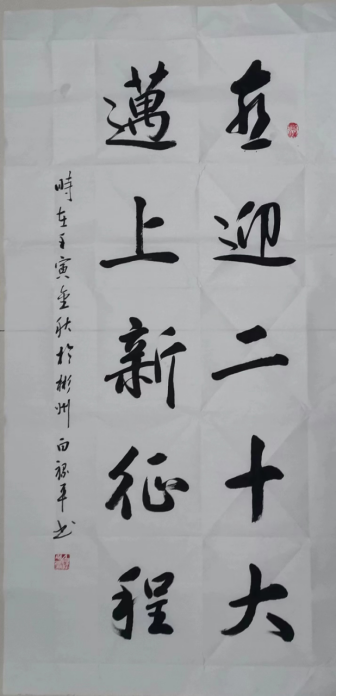 喜迎二十大
邁上新征程
時在壬寅金秋於彬州白平书